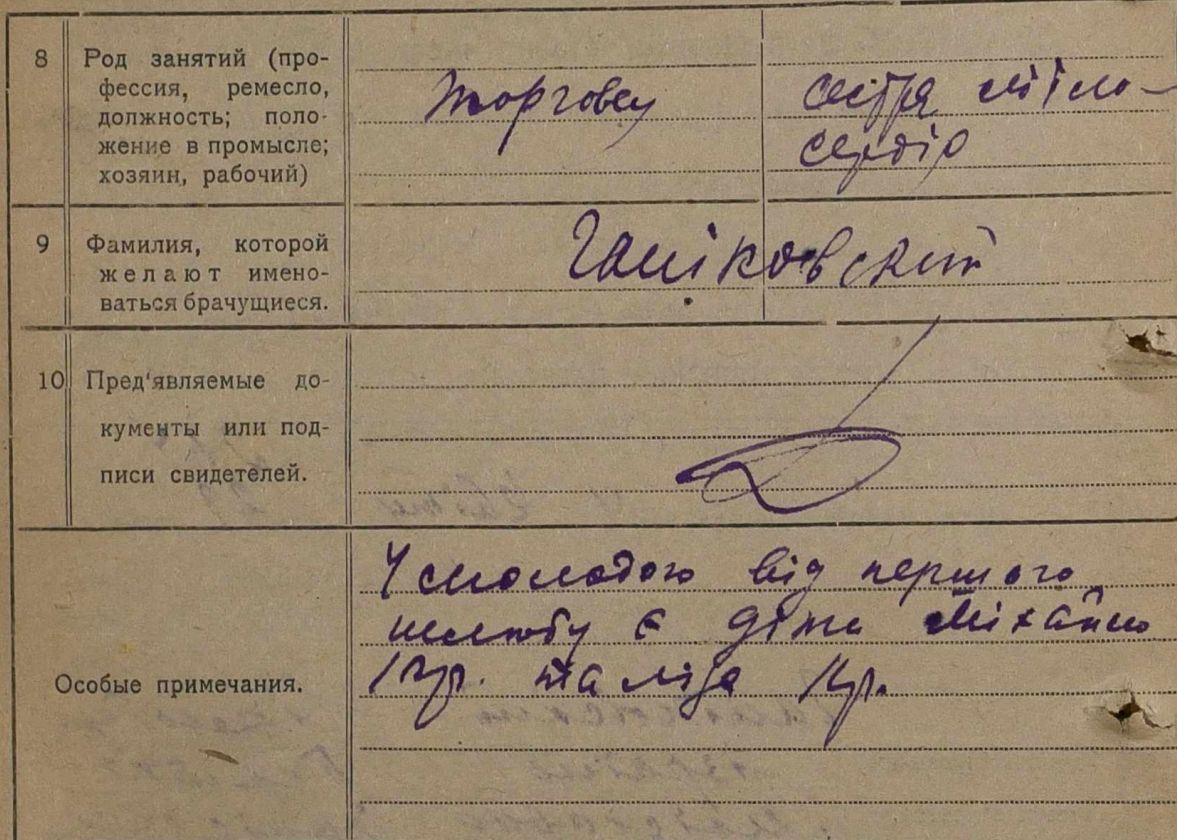 8 Род занятий (про-
фессия, ремесло,
должность; поло-
жение в промысле;
хозяин, рабочий)
торговец
сестра міло-
сердія
9 Фамилия, которой
желают имено-
ваться брачущиеся.
Гашковский
10 Пред'являемые до-
кументы или под-
писи свидетелей.
Особые примечания.
У молодого від первшого
шлюбу є діти Міхайло
та Ліда